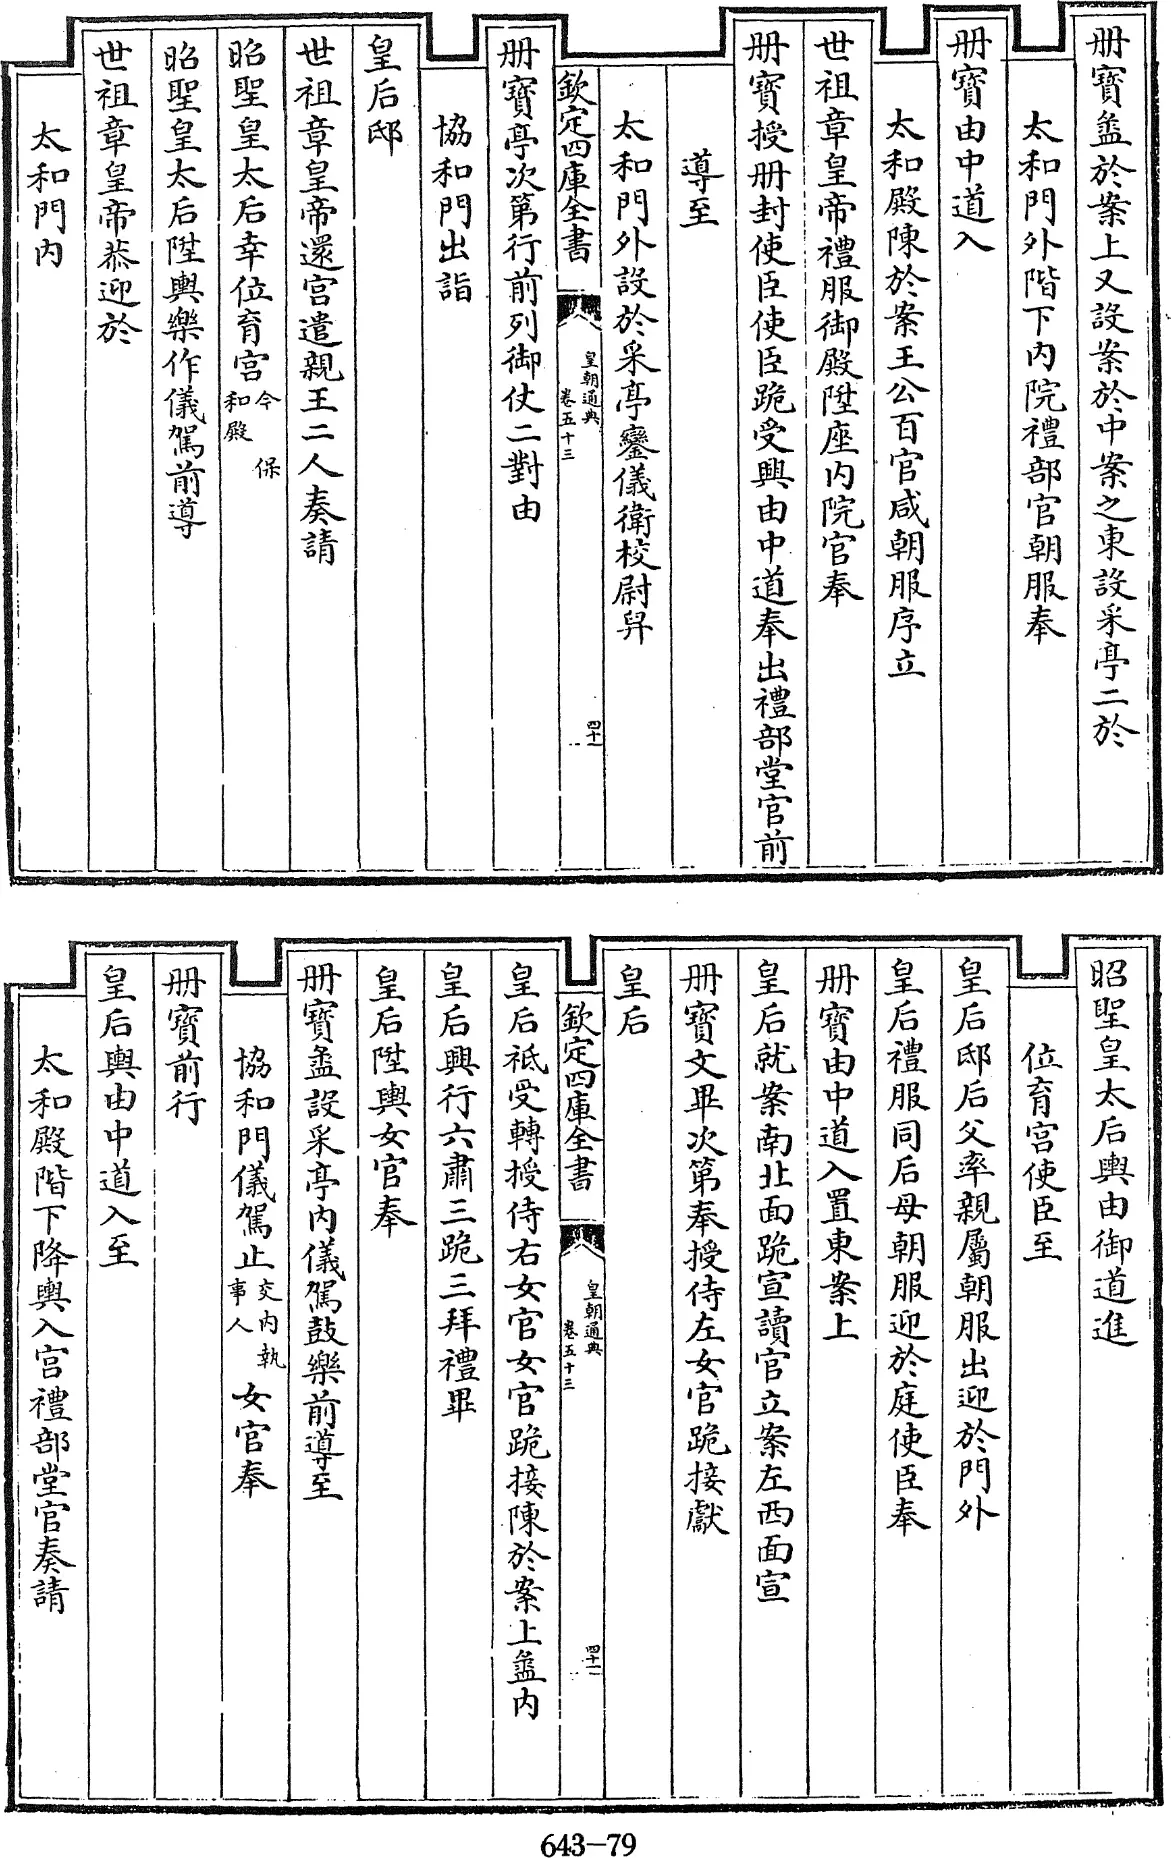 册寳盝於案上又設案於中案之東設采亭二於
太和門外階下内院禮部官朝服奉
册寳由中道入
太和殿陳於案王公百官咸朝服序立
世祖章皇帝禮服御殿陞座内院官奉
册寳授册封使臣使臣跪受興由中道奉出禮部堂官前
導至
太和門外設於采亭鑾儀衛校尉舁
欽定四庫全書
皇朝通典
卷五十三
四十一
册寳亭次第行前列御仗二對由
協和門出詣
皇后邸
世祖章皇帝還宫遣親王二人奏請
昭聖皇太后幸位育宫今保和殿
昭聖皇太后陞輿樂作儀駕前導
世祖章皇帝恭迎於
太和門内
昭聖皇太后輿由御道進
位育宫使臣至
皇后邸后父率親屬朝服出迎於門外
皇后禮服同后母朝服迎於庭使臣奉
册寳由中道入置東案上
皇后就案南北面跪宣讀官立案左西面宣
册寳文畢次第奉授侍左女官跪接獻
皇后
欽定四庫全書
皇朝通典
卷五十三
皇后祗受轉授侍右女官女官跪接陳於案上盝内
皇后興行六肅三跪三拜禮畢
皇后陞輿女官奉
册寳盝設采亭内儀駕鼓樂前導至
協和門儀駕止交内執事人女官奉
册寳前行
皇后輿由中道入至
太和殿階下降輿入宫禮部堂官奏請
643-79